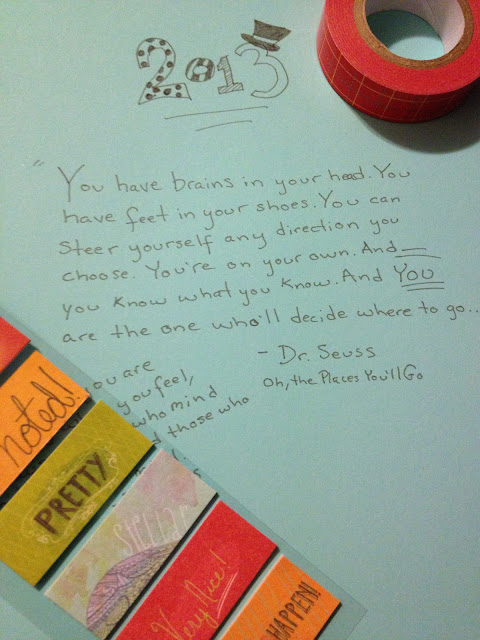 2013
"You have brains in your head. You
have feet in your shoes. You can
steer yourself any direction you
choose. You're on your own. And
you know what you know. And You
are the one who'll decide where to go..
- Dr. Seuss
Oh, the Places You'll Go
you are
you feel,
who mind
those who
noted!
PRETTY
stellar
Very Nice!
HAPPEN!